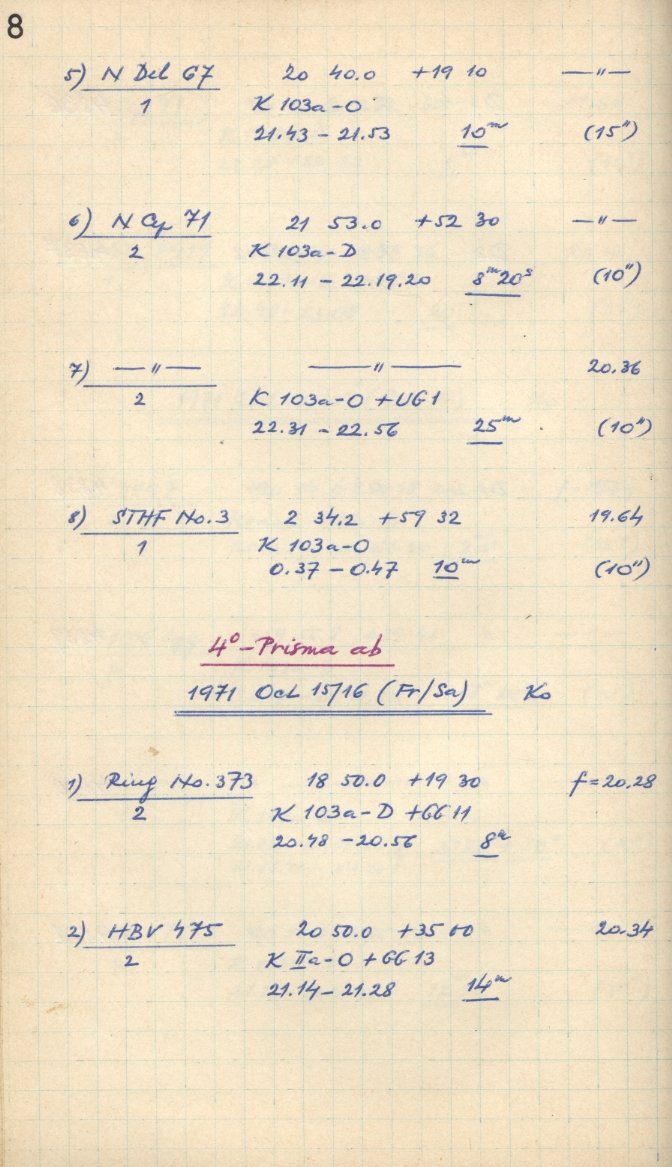 8
5) N Del 67 20 40.0 +19 10 —"—
1 K 103a-O
21.43 – 21.53 10ᵐ (15")
6) N Cy 71 21 53.0 +52 30 —"—
2 K 103a-D
22.11 – 22.19.20 8ᵐ20ˢ (10")
7) —"— —"— 20.36
2 K 103a-O + UG1
22.31 – 22.56 25ᵐ (10")
8) STHF No.3 2 34.2 +59 32 19.64
1 K 103a-O
0.37 – 0.47 10ᵐ (10")
4°-Prisma ab
1971 Oct 15/16 (Fr/Sa) Ko
1) Ring No. 373 18 50.0 +19 30 f=20.28
2 K 103a-D + GG 11
20.48 – 20.56 8ᵐ
2) HBV 475 20 50.0 +35 00 20.34
2 K IIa-O + GG 13
21.14 – 21.28 14ᵐ